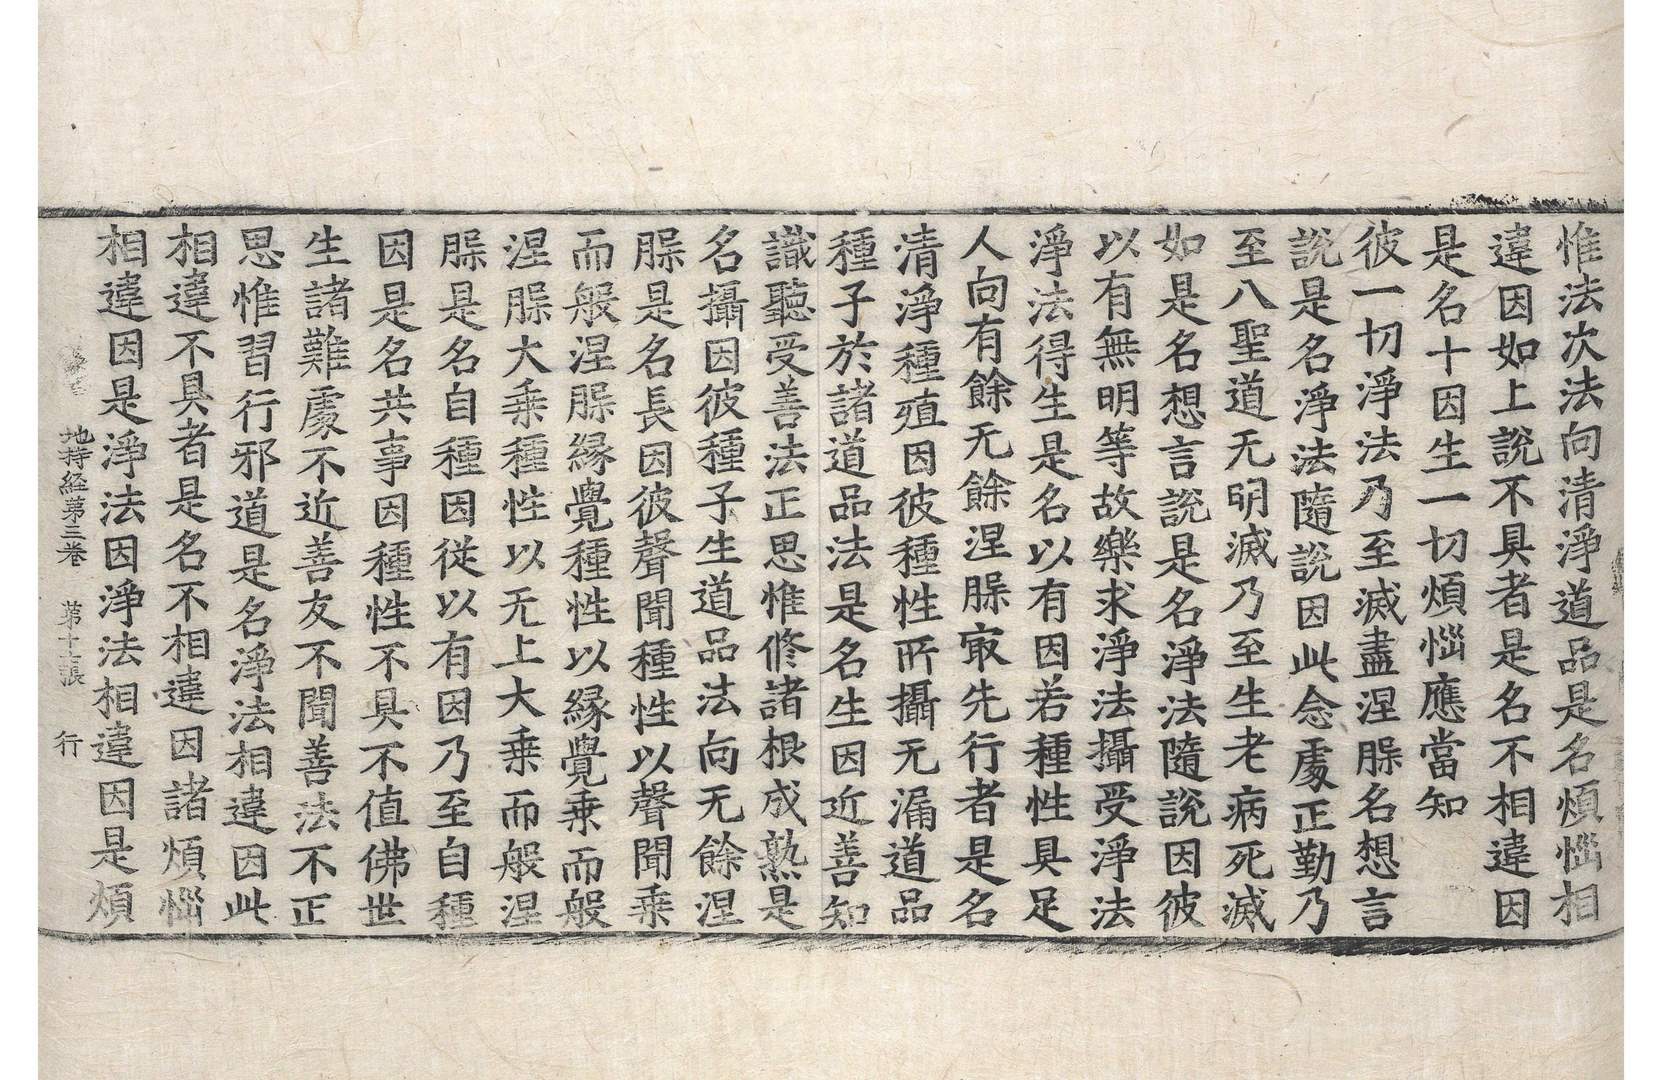 惟法次法向清淨道品是名煩惱相
違因如上說不具者是名不相違因
是名十因生一切煩惱應當知
彼一切淨法乃至滅盡涅槃名想言
說是名淨法隨說因此念處正勤乃
至八聖道无明滅乃至生老病死滅
如是名想言說是名淨法隨說因彼
以有無明等故樂求淨法攝受淨法
淨法得生是名以有因若種性具足
人向有餘无餘涅槃㝡先行者是名
清淨種殖因彼種性所攝无漏道品
種子於諸道品法是名生因近善知
識聽受善法正思惟修諸根成熟是
名攝因彼種子生道品法向无餘涅
槃是名長因彼聲聞種性以聲聞乗
而般涅槃緣覺種性以緣覺乗而般
涅槃大乗種性以无上大乗而般涅
槃是名自種因從以有因乃至自種
因是名共事因種性不具不值佛世
生諸難處不近善友不聞善法不正
思惟習行邪道是名淨法相違因此
相違不具者是名不相違因諸煩惱
相違因是淨法因淨法相違因是煩
地持経第三卷 第十一張 行